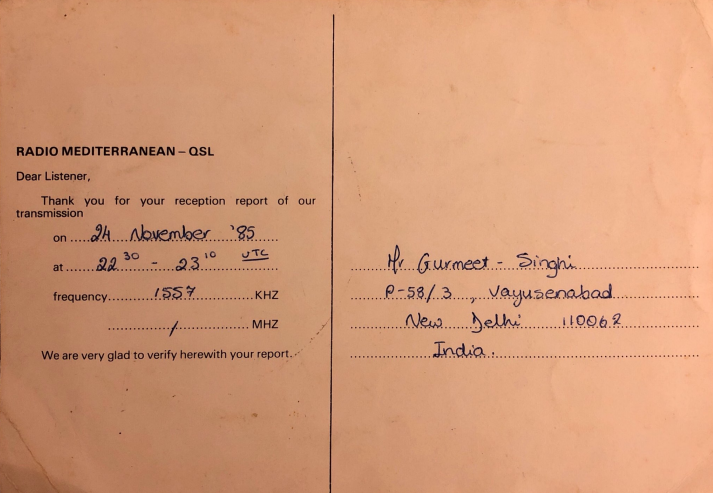 RADIO MEDITERRANEAN – QSL
Dear Listener,
Thank you for your reception report of our
transmission
on ... 24 November '85
at ... 22 30 - 23 10 UTC
frequency ... 1557 ... KHZ
/ ... MHZ
We are very glad to verify herewith your report.
Mr Gurmeet - Singhi
P-58/3, Vayusenabad
New Delhi 110062
India.